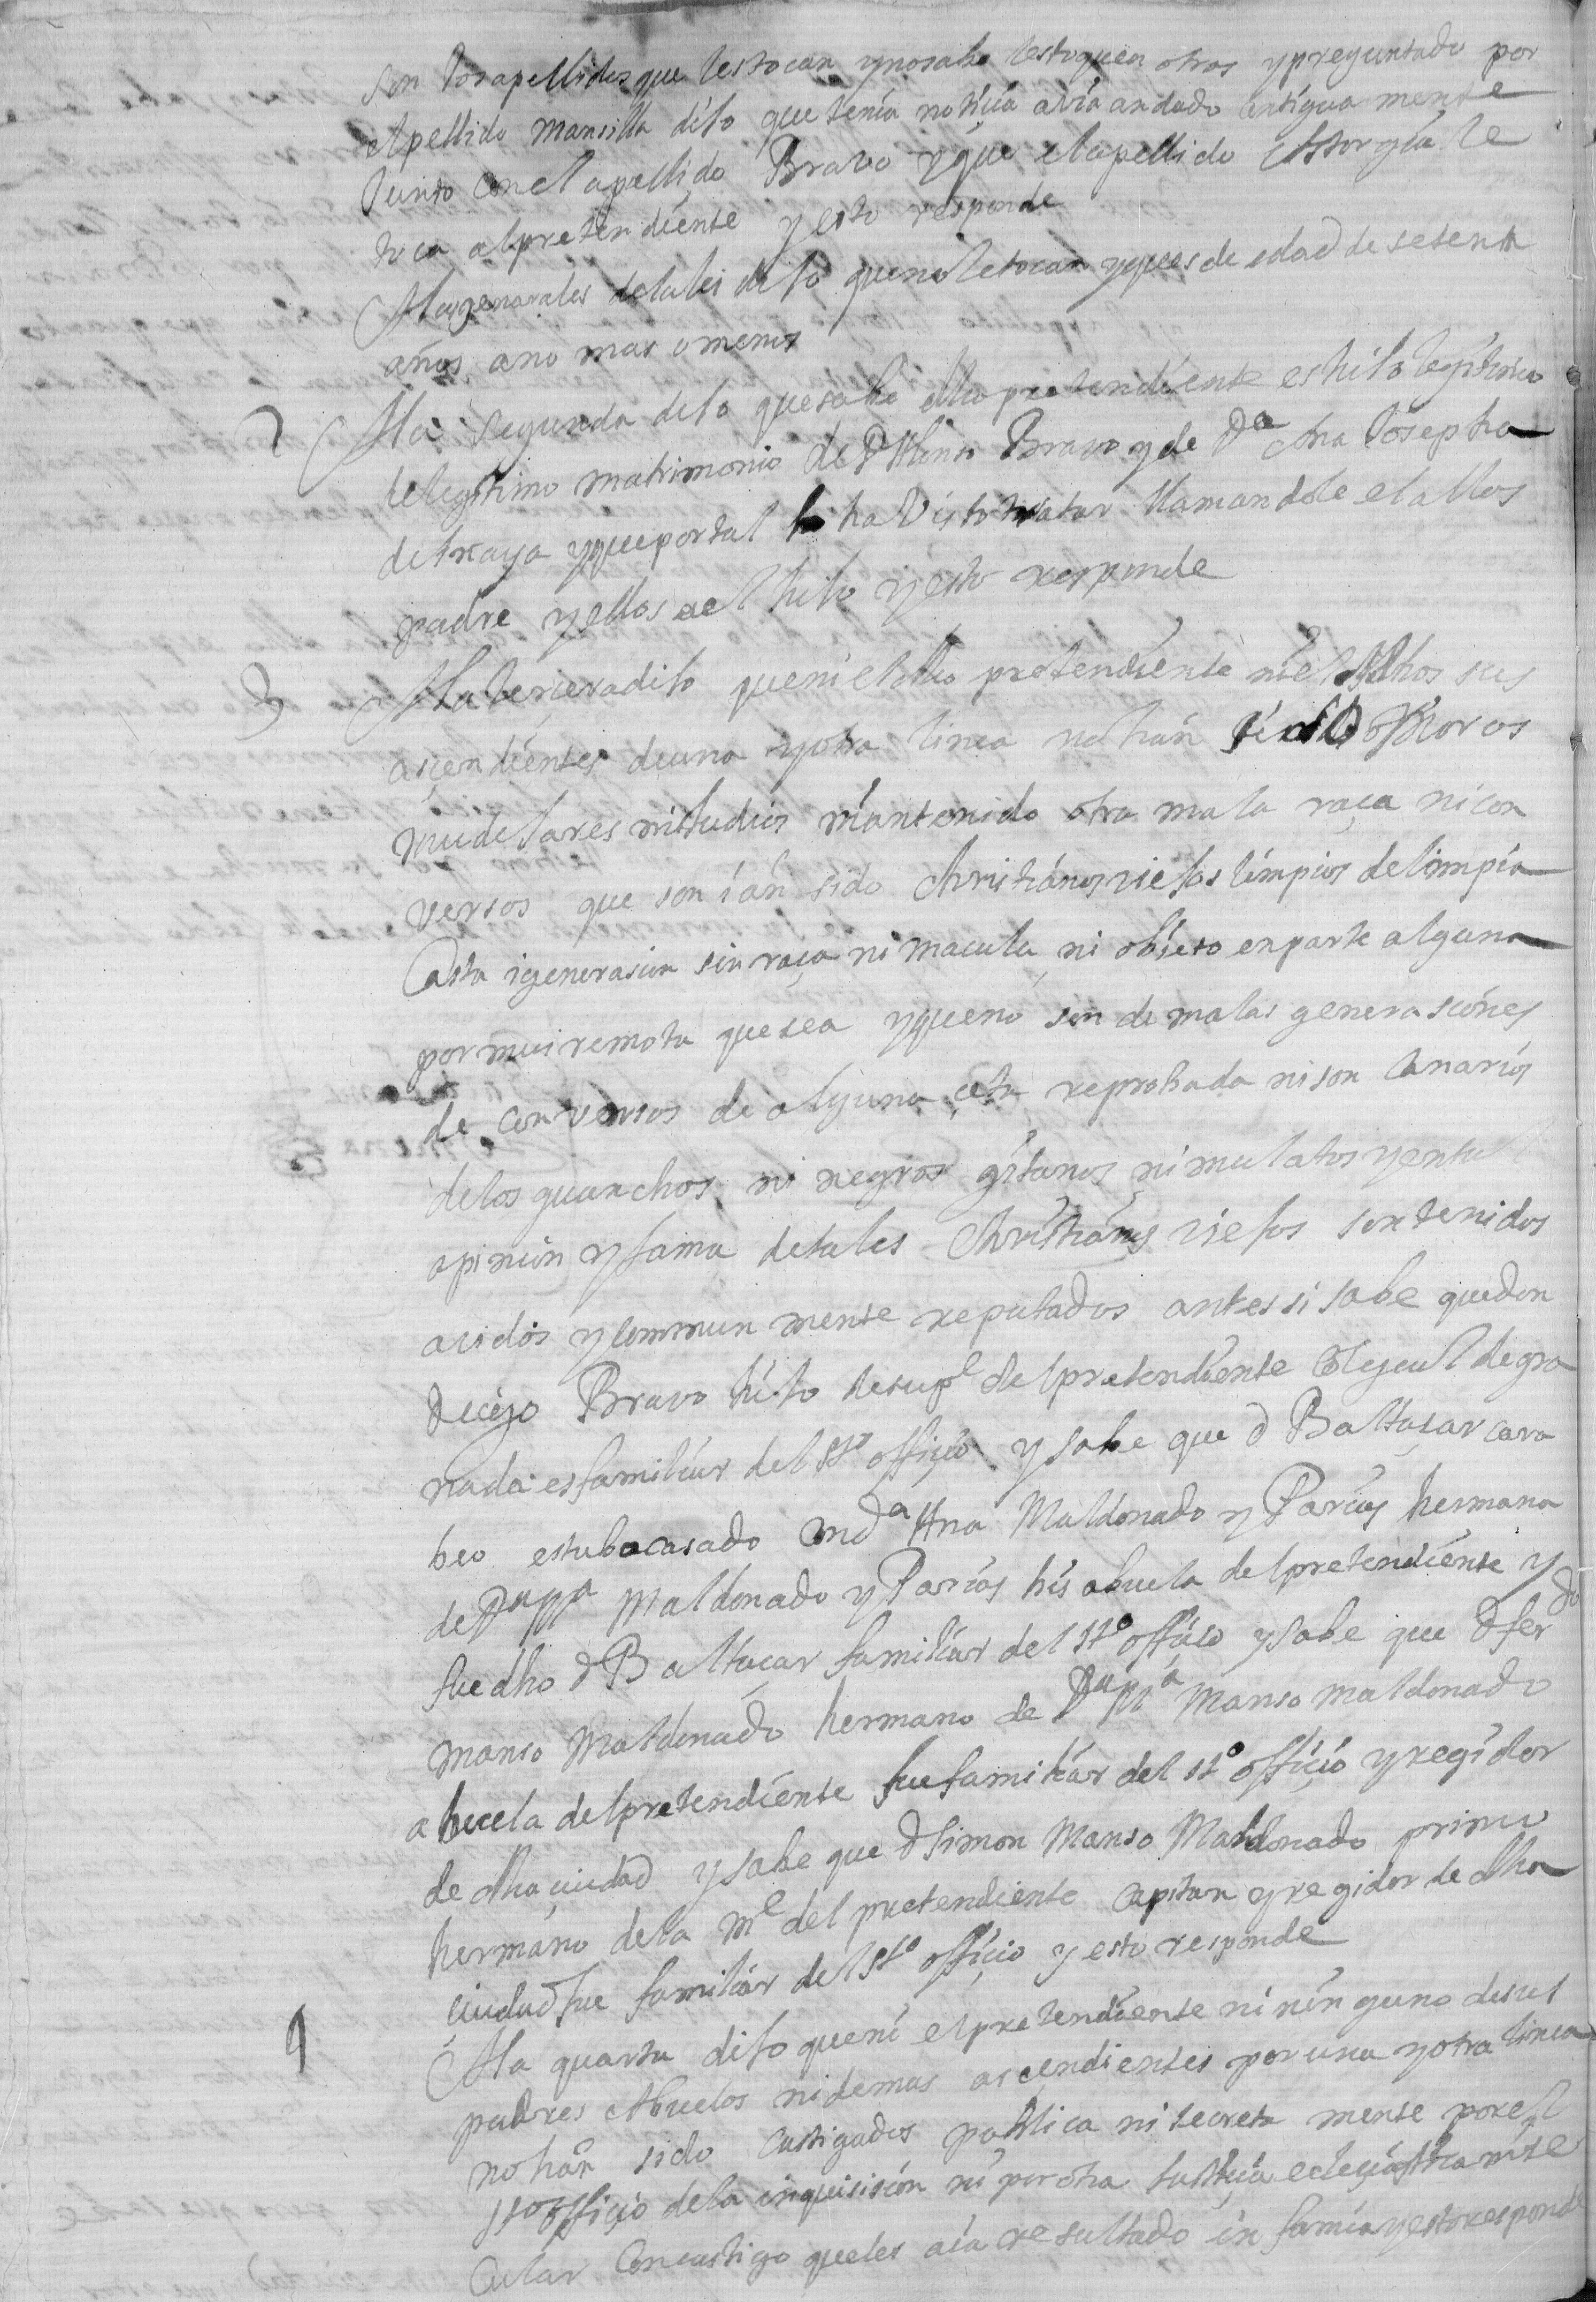 son los apellidos que les tocan y no sabe les toquen otros y preguntado por
el apellido Mansilla dijo que tenia noticia avia andado antigua mente
Junto con el apellido Bravo y que el apellido Astorga le
toca al pretendiente y esto responde
A las generales de la lei dijo que no le tocan y que es de edad de setenta
años ano mas o menos
2 A la segunda dijo que sabe dho pretendiente es hijo legitimo
de legitimo matrimonio de D Alonso Bravo y de Da Ana Josepha
de y que por tal lo ha visto tratar llamandole el a llos
padre y ellos a el hijo y esto responde
3 A la tercera dijo que ni el dho pretendiente ni el dhos sus
asçendientes de una y otra linea no han sido Moros
mudejares ni Judios ni an tenido otra mala raça ni con
versos que son i an sido christianos viejos limpios de limpia
Casta i generasion sin raça ni macula ni objeto en parte alguna
por mui remota que sea y que no son de malas generasiones
de conversos de alguna çeta reprobada ni son Canarios
de los guanchos ni negros gitanos ni mulatos y en tal
opinion y fama de tales Christianos viejos son tenidos
avidos y commun mente reputados antes si sabe que don
Diego Bravo hijo de su pe del pretendiente Colegial de gra
nada es familiar del sto offiçio y sabe que d Baltaçar cara
beo estubo casado con da Ana Maldonado y Parias hermana
de Da Maldonado y Parias bis abuela del pretendiente y
fue dho d Baltaçar familiar del sto offiçio y sabe que d ferdo
manso Maldonado hermano de Da Ma Manso maldonado
abuela del pretendiente fue familiar del sto offiçio y regidor
de dha ciudad y sabe que d Simon Manso Maldonado primo
hermano de la me del pretendiente capitan y regidor de dha
çiudad fue familiar del sto offiçio y esto responde
4 A la quarta dijo que ni el pretendiente ni ninguno de sus
padres Abuelos ni demas asçendientes por una y otra linea
no han sido castigados publica ni secreta mente por el
sto offiçio de la inquisision ni por otra Justiçia eclesiastica ni se
cular con castigo que les aia resultado infamia y esto responde